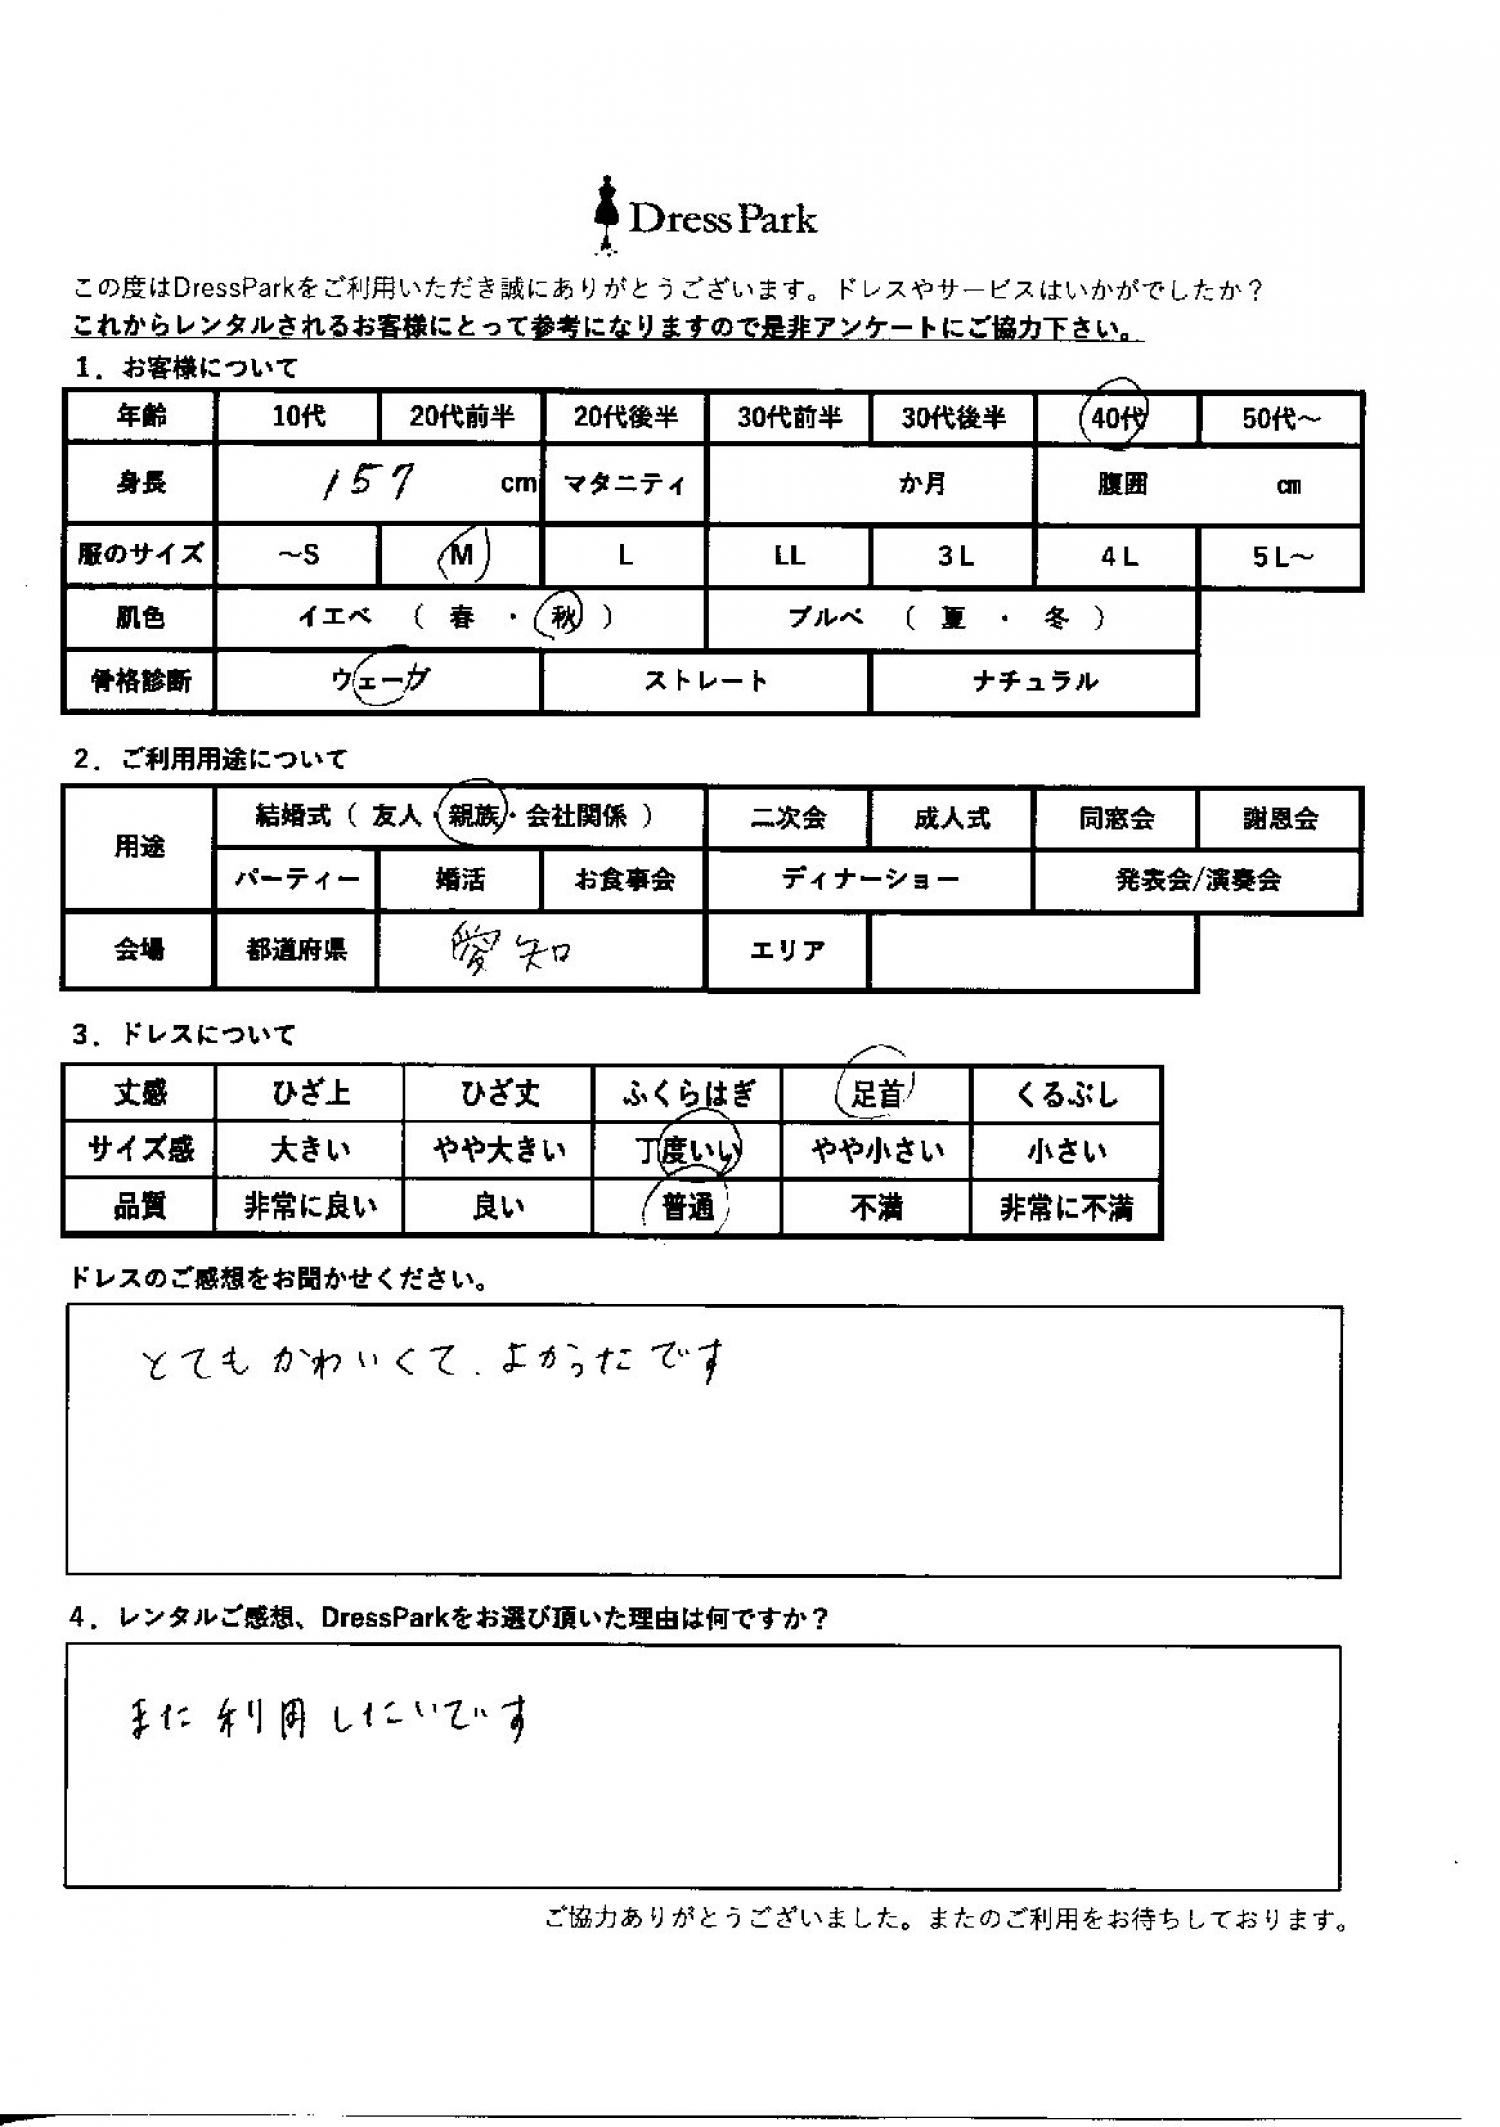 Dress Park
この度はDressParkをご利用いただき誠にありがとうございます。ドレスやサービスはいかがでしたか？
これからレンタルされるお客様にとって参考になりますので是非アンケートにご協力下さい。
1．お客様について
年齢 10代 20代前半 20代後半 30代前半 30代後半 40代 50代～
身長 157 cm マタニティ か月 腹囲 ㎝
服のサイズ ～S M L LL 3L 4L 5L～
肌色 イエベ （ 春 ・ 秋 ） ブルベ （ 夏 ・ 冬 ）
骨格診断 ウェーブ ストレート ナチュラル
2．ご利用用途について
用途 結婚式（ 友人・親族・会社関係 ） 二次会 成人式 同窓会 謝恩会
パーティー 婚活 お食事会 ディナーショー 発表会/演奏会
会場 都道府県 愛知 エリア
3．ドレスについて
丈感 ひざ上 ひざ丈 ふくらはぎ 足首 くるぶし
サイズ感 大きい やや大きい 丁度いい やや小さい 小さい
品質 非常に良い 良い 普通 不満 非常に不満
ドレスのご感想をお聞かせください。
とてもかわいくて、よかったです
4．レンタルご感想、DressParkをお選び頂いた理由は何ですか？
また利用したいです
ご協力ありがとうございました。またのご利用をお待ちしております。